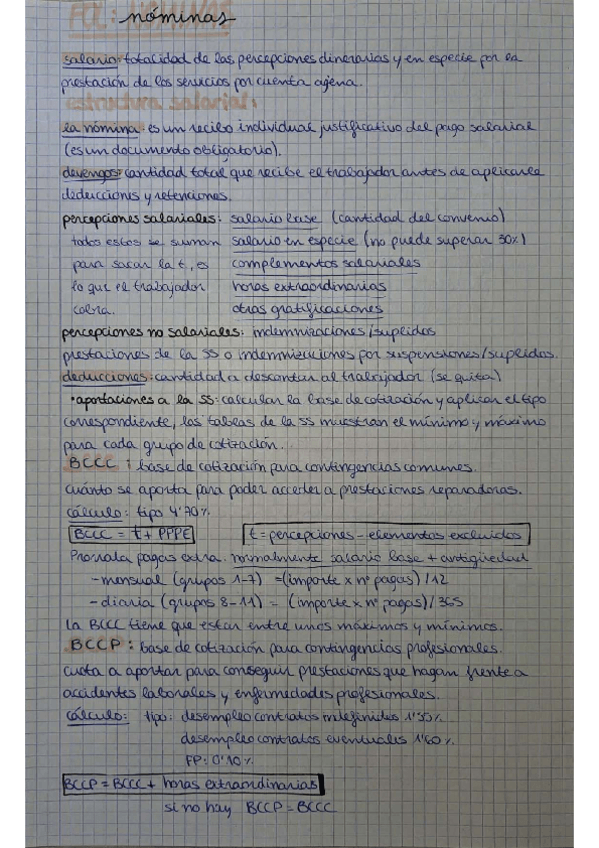 FOL: NÓMINAS
nóminas
salario: totalidad de las percepciones dinerarias y en especie por la
prestación de los servicios por cuenta ajena.
estructura salarial:
la nómina: es un recibo individual justificativo del pago salarial
(es un documento obligatorio).
devengos: cantidad total que recibe el trabajador antes de aplicarle
deducciones y retenciones.
percepciones salariales: salario base (cantidad del convenio)
todos estos se suman salario en especie (no puede superar 30%)
para sacar la t, es complementos salariales
lo que el trabajador horas extraordinarias
cobra. otras gratificaciones
percepciones no salariales: indemnizaciones/suplidos
prestaciones de la SS o indemnizaciones por suspensiones/suplidos.
deducciones: cantidad a descontar al trabajador (se quita)
• aportaciones a la SS: calcular la base de cotización y aplicar el tipo
correspondiente, las tablas de la SS muestran el mínimo y máximo
para cada grupo de cotización.
BCCC: base de cotización para contingencias comunes.
cuánto se aporta para poder acceder a prestaciones reparadoras.
cálculo: tipo 4'70%
BCCC = t + PPPE t = percepciones - elementos excluidos
Prorrata pagas extra. normalmente salario base + antigüedad
- mensual (grupos 1-7) = (importe x nº pagas) / 12
- diaria (grupos 8-11) = (importe x nº pagas) / 365
la BCCC tiene que estar entre unos máximos y mínimos.
BCCP: base de cotización para contingencias profesionales.
cuota a aportar para conseguir prestaciones que hagan frente a
accidentes laborales y enfermedades profesionales.
cálculo: tipo: desempleo contratos indefinidos 1'55%
desempleo contratos eventuales 1'60%
FP: 0'10%
BCCP = BCCC + horas extraordinarias
si no hay BCCP = BCCC